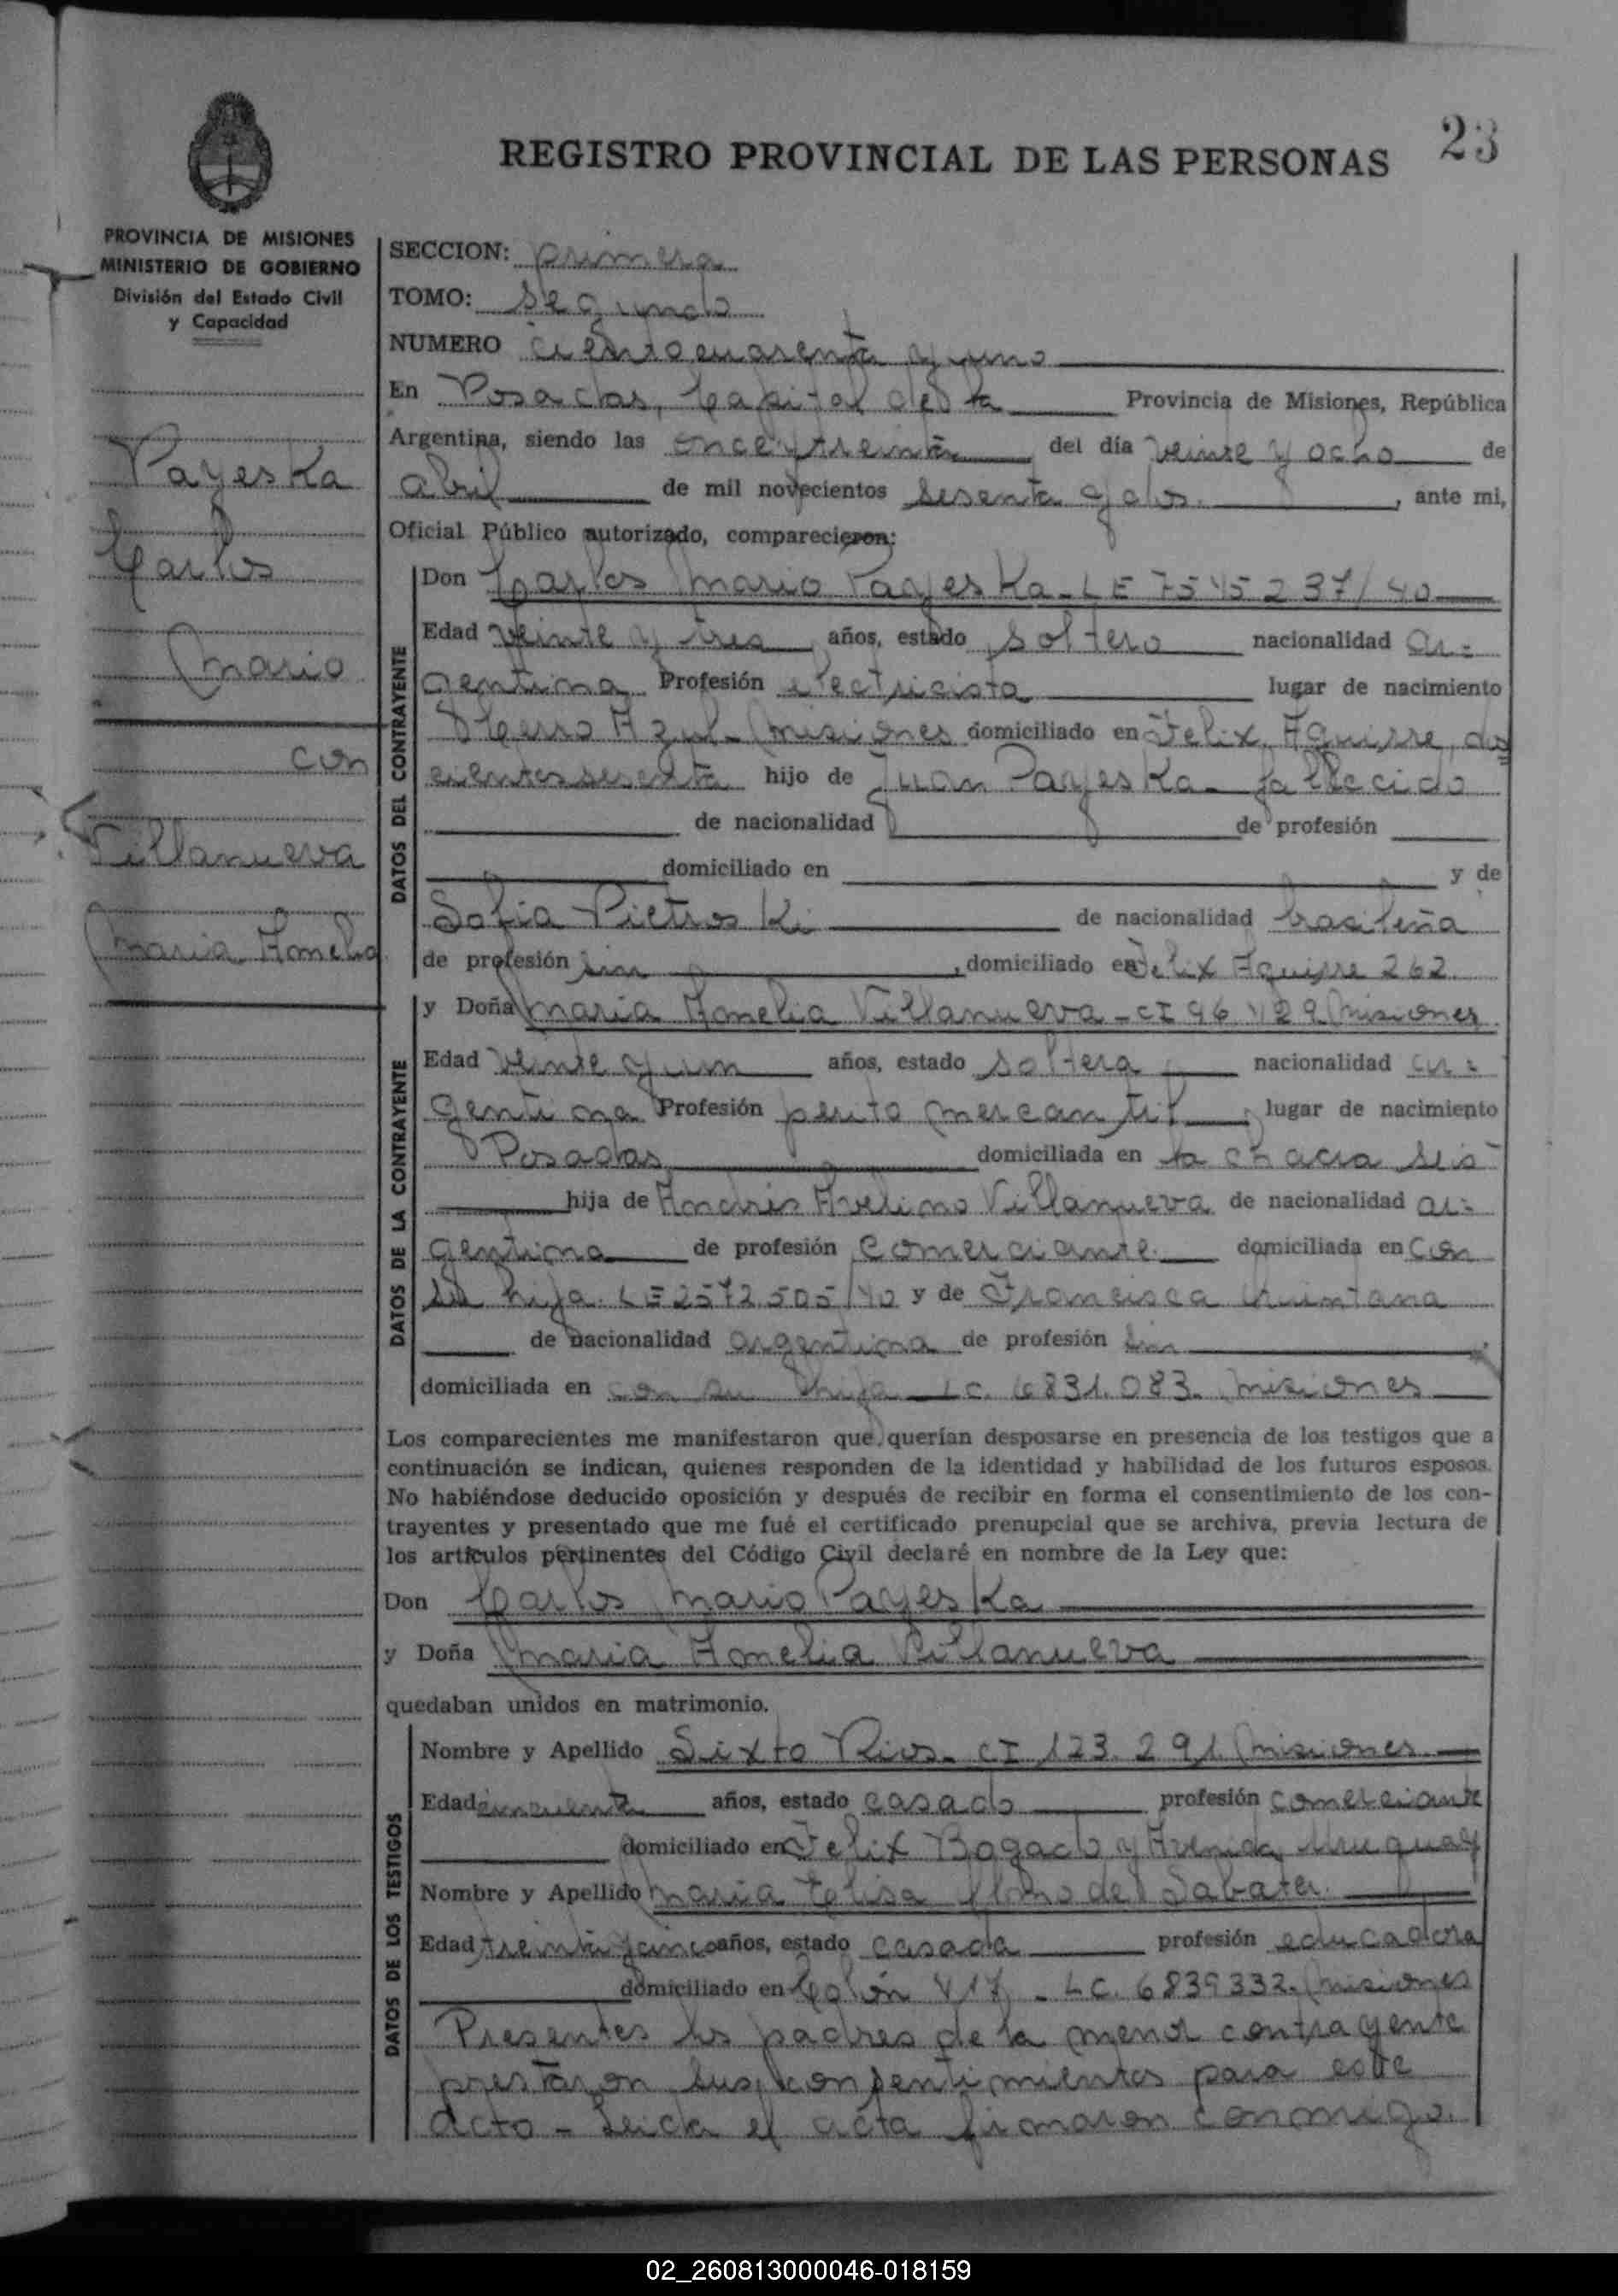 23
REGISTRO PROVINCIAL DE LAS PERSONAS
PROVINCIA DE MISIONES
MINISTERIO DE GOBIERNO
División del Estado Civil
y Capacidad
Payeska
Carlos
Mario
con
Villanueva
Maria Amelia
SECCION: primera
TOMO: segundo
NUMERO ciento cuarenta y uno
En Posadas, Capital de la Provincia de Misiones, República
Argentina, siendo las once y treinta del día veinte y ocho de
abril de mil novecientos sesenta y dos, ante mi,
Oficial Público autorizado, comparecieron:
DATOS DEL CONTRAYENTE
Don Carlos Mario Payeska - LE 7545237/40
Edad veinte y tres años, estado soltero nacionalidad ar=
gentina Profesión electricista lugar de nacimiento
Cerro Azul - Misiones domiciliado en Felix Aguirre dos
cientos sesenta hijo de Juan Payeska - fallecido
de nacionalidad de profesión
domiciliado en y de
Sofia Pietroski de nacionalidad brasileña
de profesión sin, domiciliado en Felix Aguirre 262.
DATOS DE LA CONTRAYENTE
y Doña Maria Amelia Villanueva - CI 96429 Misiones
Edad veinte y un años, estado soltera nacionalidad ar=
gentina Profesión perito mercantil, lugar de nacimiento
Posadas domiciliada en la chacra seis
hija de Andrés Avelino Villanueva de nacionalidad ar=
gentina de profesión comerciante domiciliada en con
su hija. LE 2572505/40 y de Francisca Quintana
de nacionalidad argentina de profesión sin
domiciliada en con su hija - LC. 6831.083. Misiones
Los comparecientes me manifestaron que querían desposarse en presencia de los testigos que a
continuación se indican, quienes responden de la identidad y habilidad de los futuros esposos.
No habiéndose deducido oposición y después de recibir en forma el consentimiento de los con-
trayentes y presentado que me fué el certificado prenupcial que se archiva, previa lectura de
los artículos pertinentes del Código Civil declaré en nombre de la Ley que:
Don Carlos Mario Payeska
y Doña Maria Amelia Villanueva
quedaban unidos en matrimonio.
DATOS DE LOS TESTIGOS
Nombre y Apellido Sixto Rios - CI 123.291 Misiones
Edad cincuenta años, estado casado profesión comerciante
domiciliado en Felix Bogado y Avenida Uruguay
Nombre y Apellido Maria Felisa de Sabater
Edad treinta y cinco años, estado casada profesión educadora
domiciliado en Colón 417 - LC. 6839332. Misiones
Presentes los padres de la menor contrayente
prestaron sus consentimientos para este
acto - Leida el acta firmaron conmigo.
02_260813000046-018159